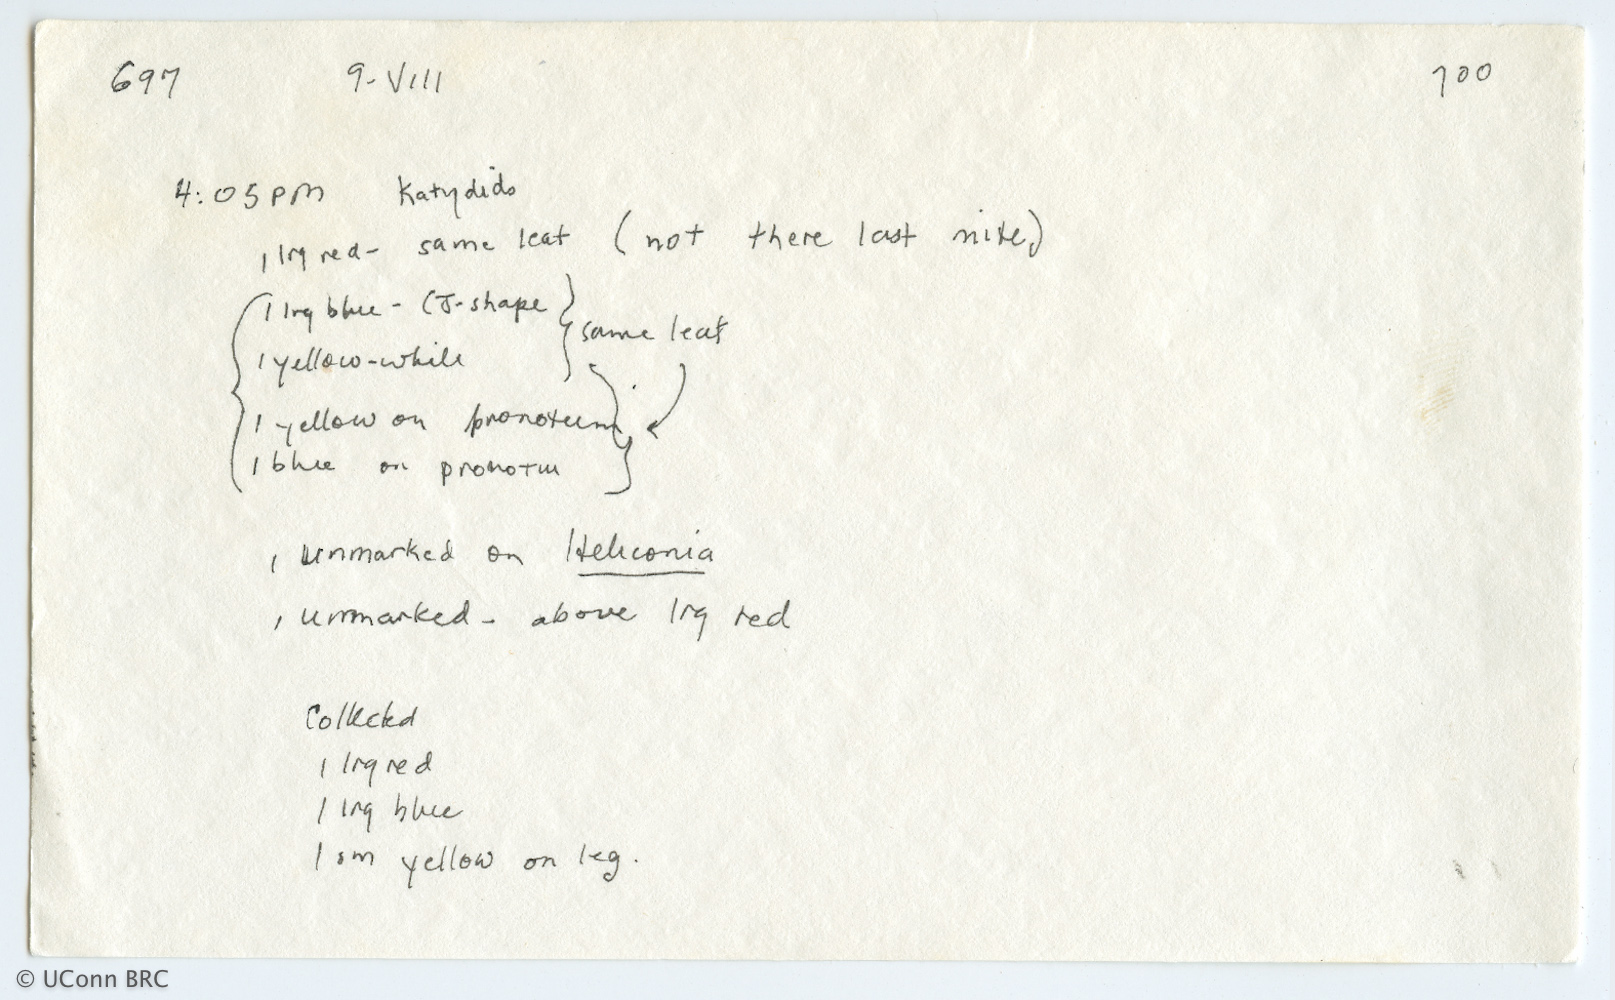 697 9-VIII 700
4:05 PM Katydids
1 lrg red - same leaf (not there last nite)
1 lrg blue - (J-shape
1 yellow-while
same leaf
1 yellow on pronotum
1 blue on pronotm
1 unmarked on Heliconia
1 unmarked - above lrg red
Collected
1 lrg red
1 lrg blue
1 sm yellow on leg.
© UConn BRC